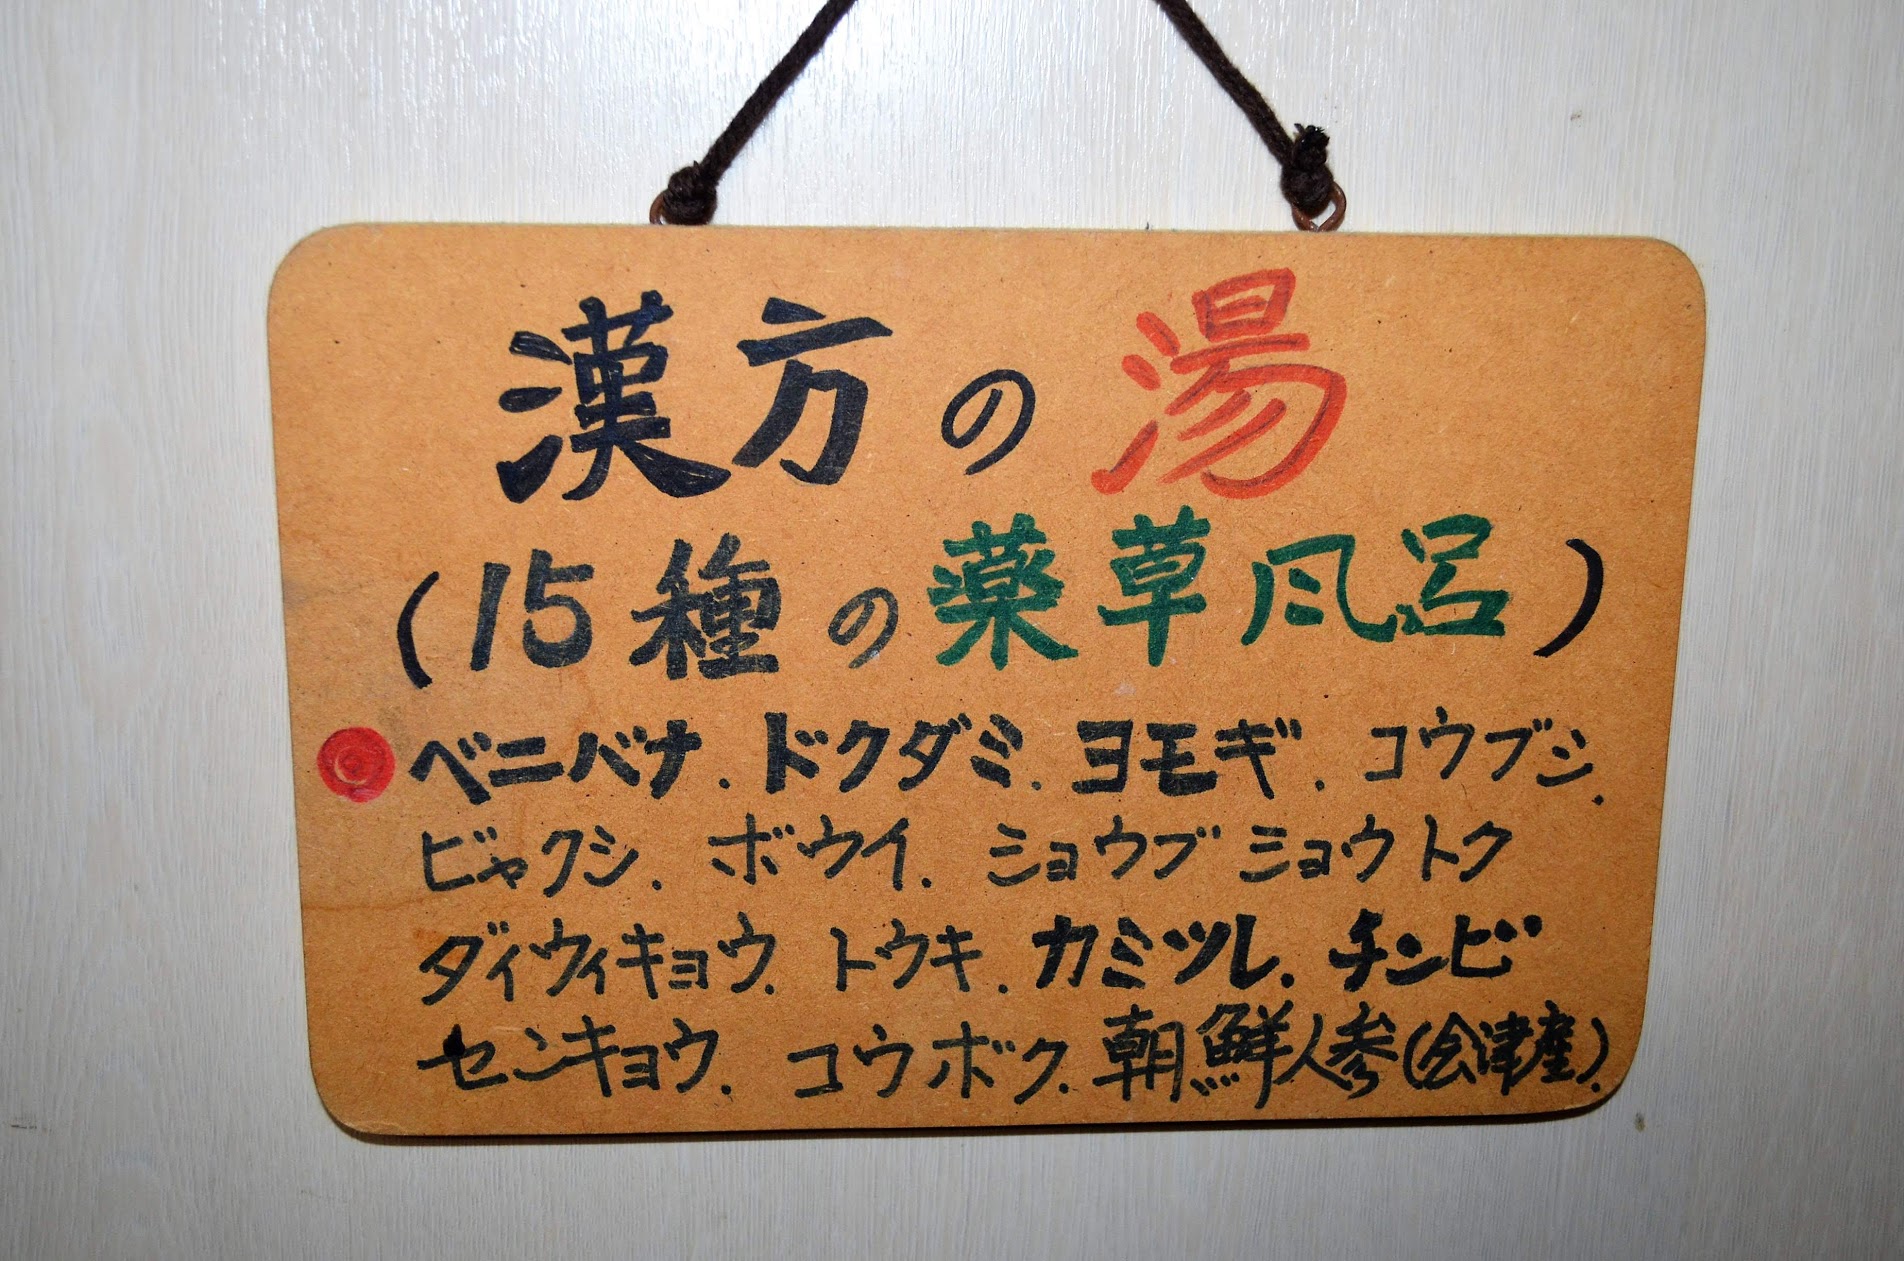 漢方の湯
(15種の薬草風呂)
ベニバナ.ドクダミ.ヨモギ.コウブシ.
ビャクシ.ボウイ.ショウブ ショウトク
ダイウイキョウ.トウキ.カミツレ.チンピ
センキョウ.コウボク.朝鮮人参(会津産).